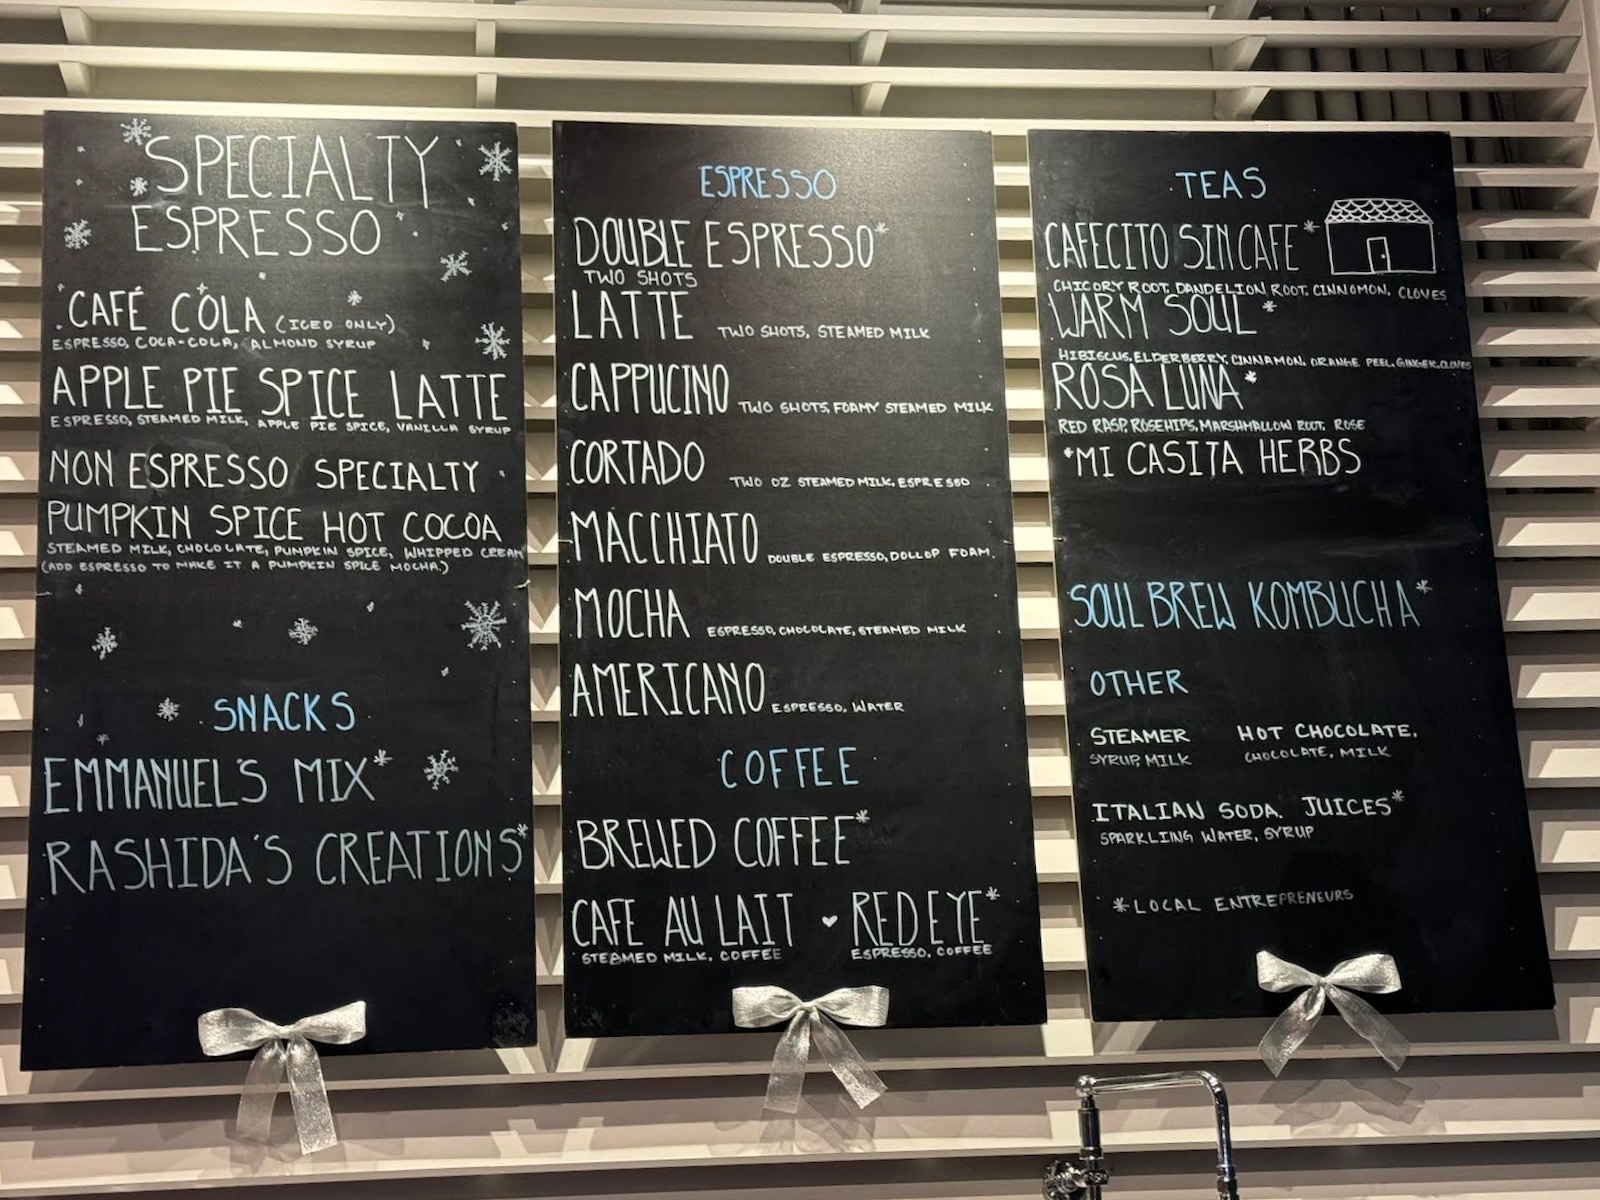 SPECIALTY
ESPRESSO
CAFÉ COLA (ICED ONLY)
ESPRESSO, COCA-COLA, ALMOND SYRUP
APPLE PIE SPICE LATTE
ESPRESSO, STEAMED MILK, APPLE PIE SPICE, VANILLA SYRUP
NON ESPRESSO SPECIALTY
PUMPKIN SPICE HOT COCOA
STEAMED MILK, CHOCOLATE, PUMPKIN SPICE, WHIPPED CREAM
(ADD ESPRESSO TO MAKE IT A PUMPKIN SPICE MOCHA.)
SNACKS
EMMANUEL'S MIX*
RASHIDA'S CREATIONS*
ESPRESSO
DOUBLE ESPRESSO*
TWO SHOTS
LATTE TWO SHOTS, STEAMED MILK
CAPPUCINO TWO SHOTS, FOAMY STEAMED MILK
CORTADO TWO OZ STEAMED MILK, ESPRESSO
MACCHIATO DOUBLE ESPRESSO, DOLLOP FOAM.
MOCHA ESPRESSO, CHOCOLATE, STEAMED MILK
AMERICANO ESPRESSO, WATER
COFFEE
BREWED COFFEE*
CAFE AU LAIT RED EYE*
STEAMED MILK, COFFEE ESPRESSO, COFFEE
TEAS
CAFECITO SIN CAFE*
CHICORY ROOT, DANDELION ROOT, CINNOMON, CLOVES
WARM SOUL*
HIBISCUS, ELDERBERRY, CINNAMON, ORANGE PEEL, GINGER, CLOVES
ROSA LUNA*
RED RASP, ROSEHIPS, MARSHMALLOW ROOT, ROSE
*MI CASITA HERBS
SOUL BREW KOMBUCHA*
OTHER
STEAMER HOT CHOCOLATE.
SYRUP, MILK CHOCOLATE, MILK
ITALIAN SODA. JUICES*
SPARKLING WATER, SYRUP
*LOCAL ENTREPRENEURS